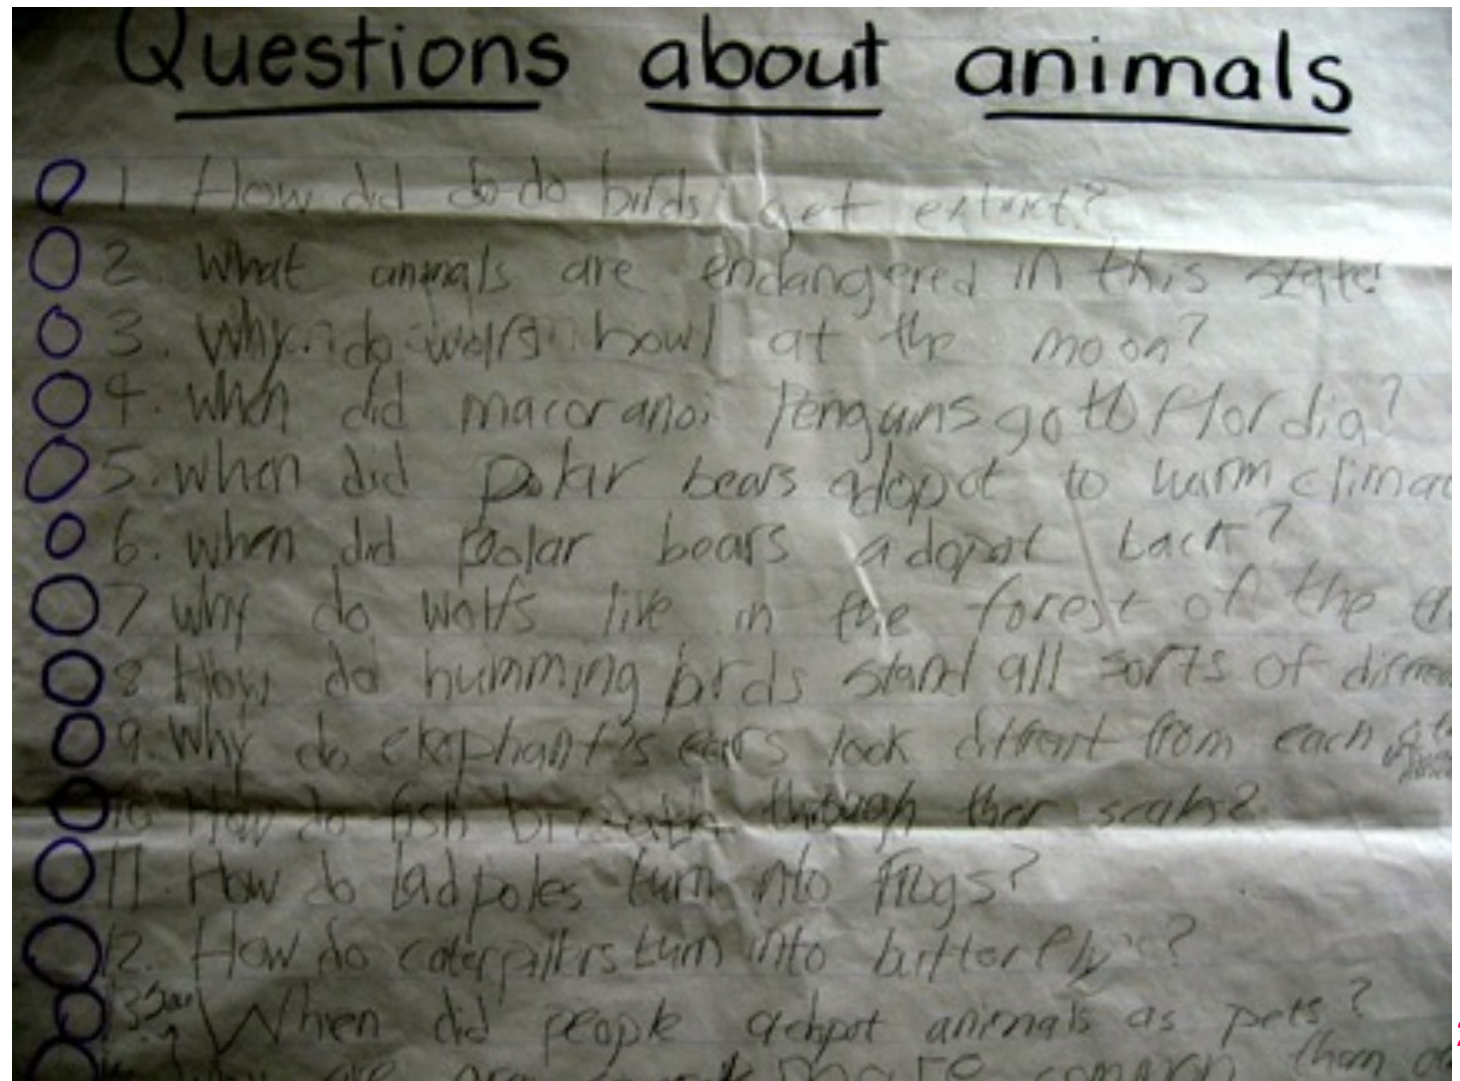 Questions about animals
1 How did do-do birds get extinct?
2. What animals are endangered in this state?
3. Why do wolfs howl at the moon?
4. When did macoranoi penguins go to Flordia?
5. when did polar bears adopot to warm climat
6. when did polar bears adopot back?
7 why do wolfs live in the forest of the
8 How do humming birds stand all sorts of
9. Why do elephant's ears look diffrent from each
10 How do fish breath through ther scals?
11. How do tadpoles turn into frogs?
12. How do caterpillers turn into butterfly's?
13. When did people adopot animals as pets?
are more common than